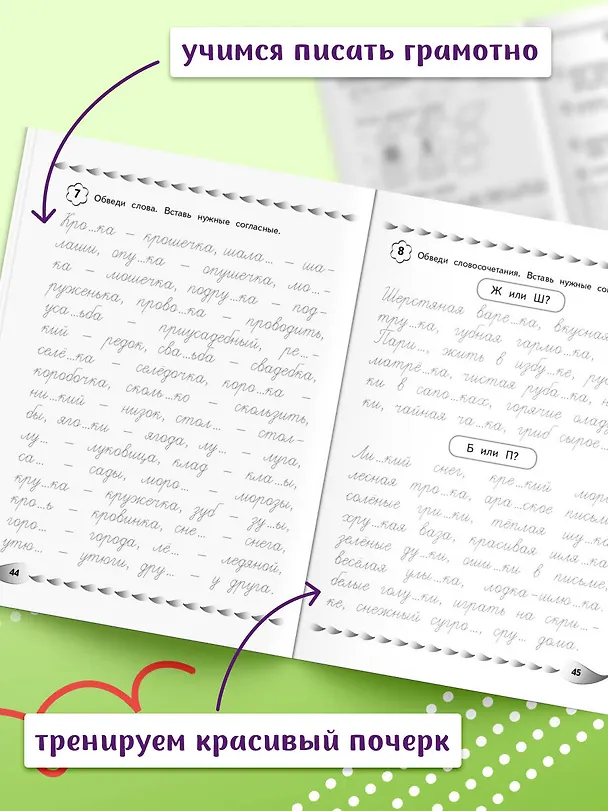 учимся писать грамотно
7 Обведи слова. Вставь нужные согласные.
Кро...ка – крошечка, шала... – ша-
лаши, опу...ка – опушечка, мо...-
ка – мошечка, подру...ка – под-
руженька, прово...ка – проводить,
уса...ьба – приусадебный, ре...-
кий – редок, сва...ьба – свадебка,
селё...ка – селёдочка, коро...ка –
коробочка, сколь...ко – скользить,
ни...кий – низок, стол... – стол-
бы, яго...ки – ягода, лу... – луга,
лу... – луковица, клад – кла...ы,
са... – сады, моро... – морозы,
кру...ка – кружечка, зуб – зу...ы,
кро...ь – кровинка, сне... – снега,
горо... – города, лё... – ледяной,
утю... – утюги, дру... – у друга.
44
8 Обведи словосочетания. Вставь нужные сог
Ж или Ш?
Шерстяная варе...ка, вкусная
тру...ка, губная гармо...ка,
Пари..., жить в избу...ке, ру
матрё...ка, чистая руба...ка, н
ки в сапо...ках, горячие олад
ки, чайная ча...ка, гриб сырое...
Б или П?
Ли...кий снег, кре...кий мор
лесная тро...ка, ара...ское письм
солёные гри...ки, тёплая шу...
хру...кая ваза, красивая шля...ка
зелёные ду...ки, оши...ки в письме,
весёлая улы...ка, лодка-шлю...ка,
белые голу...ки, играть на скри...-
ке, снежный сугро..., сру... дома.
45
тренируем красивый почерк